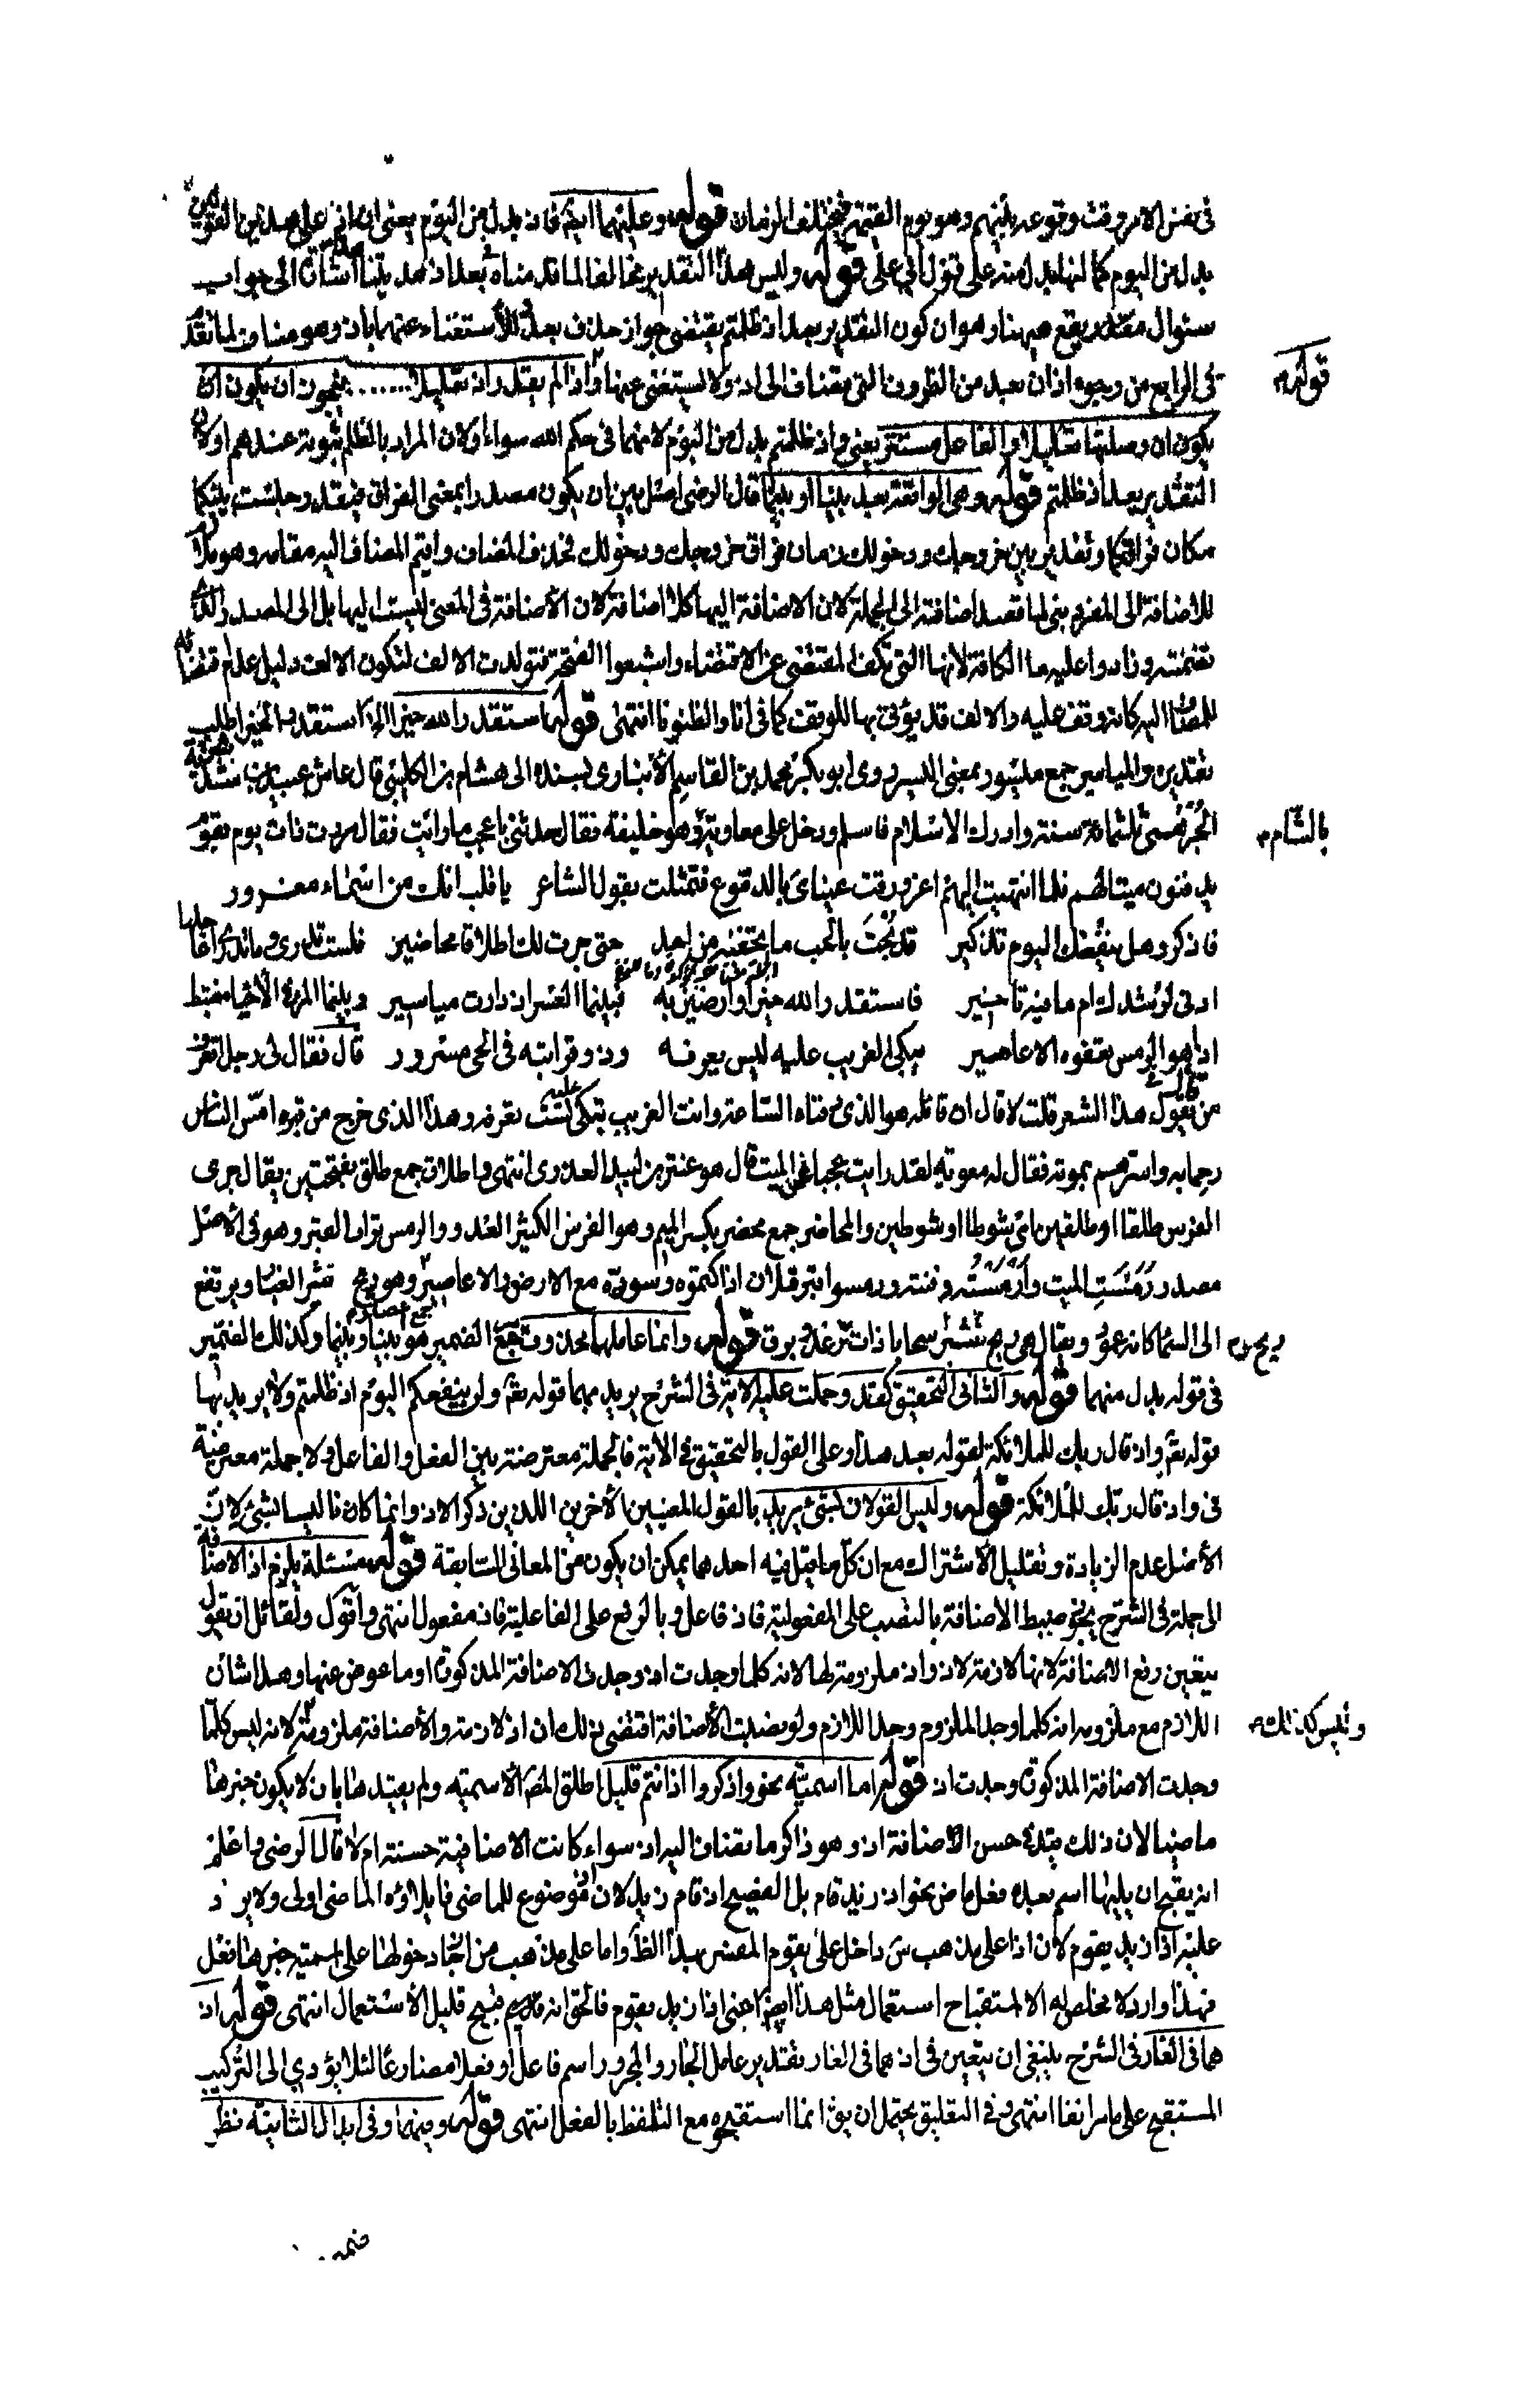 في نفس الامر وقت وقوعه بينهم وهو يوم القيمة فيختلف الزمان قوله وعليهما ايضا فاذ بدل من اليوم يعني ان اذ على هذين القولين
بدل من اليوم كما انها بدل منه على قول ابي علي قوله وليس هذا التقدير مخالفا لما قدمناه في بعد اذ هديتنا اشارة الى جواب
سئوال مقدر يقع هيهنا وهو ان كون التقدير بعد اذ ظلمتم يقتضي جواز حذف بعد للاستغناء عنها باذ وهو مناف لما تقدم
في الرابع من وجوه اذ ان بعد من الظروف التي تضاف الى اذ ولا يستغنى عنها قوله واذا لم يقدر اذ تعليلا ...... فيجوز ان يكون ان
يكون ان وصلتها تعليلا والفاعل مستتر يعني واذ ظلمتم بدل من اليوم لانهما في حكم الله سواء او لان المراد بالظلم ثبوته عندهم او لان
التقدير بعد اذ ظلمتم قوله وهي الواقعة بعد بينا او بينما قال الرضي اصل بين ان يكون مصدرا بمعنى الفراق فتقدير جلست بينكما
مكان فراقكما وتقدير بين خروجك ودخولك زمان فراق خروجك ودخولك فحذف المضاف واقيم المضاف اليه مقامه وهو لازم
للاضافة الى المفرد بني لما قصد اضافته الى الجملة لان الاضافة اليها كلا اضافة لان الاضافة في المعنى ليست اليها بل الى المصدر الذي
تضمنته وزادوا عليه ما الكافة لانها التي تكف المقتضي عن الاقتضاء واشبعوا الفتحة فتولدت الالف لتكون الالف دليل عدم اقتضائه
للمضاف اليه كانه وقف عليه والالف قد يؤتى بها للوقف كما في انا والظنونا انتهى قوله استقدر الله خيرا الخ استقدر الخير اطلب
تقديره والمياسير جمع ميسور بمعنى اليسر وروى ابو بكر محمد بن القاسم الانباري بسنده الى هشام بن الكلبي قال عاش عبيد بن شرية
الجرهمي ثلثمائة سنة وادرك الاسلام فاسلم ودخل على معاوية بالشام وهو خليفة فقال حدثني باعجب ما رايت فقال مررت ذات يوم بقوم
يدفنون ميتا لهم فلما انتهيت اليهم اغرورقت عيناي بالدموع فتمثلت بقول الشاعر يا قلب انك من اسماء مغرور
فاذكر وهل ينفعنك اليوم تذكير قد بحت بالحب ما تخفيه من احد حتى جرت لك اطلاقا محاضير فلست تدري وما تدري اعاجلها
ادنى لرشدك ام ما فيه تاخير فاستقدر الله خيرا وارضين به فبينما العسر اذ دارت مياسير وبينما المرء في الاحياء مغتبط
اذا هو الرمس تعفوه الاعاصير يبكي الغريب عليه ليس يعرفه وذو قرابته في الحي مسرور قال فقال لي رجل اتعرف
من يقول هذا الشعر قلت لا قال ان قائله هو الذي دفناه الساعة وانت الغريب تبكي عليه لست تعرفه وهذا الذي خرج من قبره امس الناس
رحما به واسرهم بموته فقال له معوية لقد رايت عجبا فمن الميت قال هو عثير بن لبيد العذري انتهى واطلاق جمع طلق بفتحتين يقال جرى
الفرس طلقا او طلقين اي شوطا او شوطين والمحاضير جمع محضير بكسر الميم وهو الفرس الكثير العدو والرمس تراب القبر وهو في الاصل
مصدر رمست الميت وارمسته دفنته ورمسوا قبر فلان اذا كتموه وسووه مع الارض والاعاصير جمع اعصار وهو ريح تثير الغبار ويرتفع
الى السماء كانه عمود ويقال هي ريح تثير سحابا ذات رعد وبرق قوله وانما عاملها محذوف مرجع الضمير هو بينا وبينما وكذلك الضمير
في قوله بدل منهما قوله والثاني التحقيق كقد وحملت عليه الاية في الشرح يريد بهما قوله تعالى ولن ينفعكم اليوم اذ ظلمتم ولا يريد بها
قوله تعالى واذ قال ربك للملائكة لقوله بعد هذا وعلى القول بالتحقيق في الاية فالجملة معترضة بين الفعل والفاعل ولا جملة معترضة
في واذ قال ربك للملائكة قوله وليس القولان بشيء يريد بالقول المعنيين الاخرين اللذين ذكر الاذ وانما كانا ليسا بشيء لان
الاصل عدم الزيادة وتقليل الاشتراك مع ان كل ما قيل فيه احدهما يمكن ان يكون من المعاني السابقة قوله مسئلة يلزم اذ الاضافة
الى جملة في الشرح يجوز ضبط الاضافة بالنصب على المفعولية فاذ فاعل وبالرفع على الفاعلية فاذ مفعول انتهى واقول ولقائل ان يقول
يتعين رفع الاضافة لانها لازمة لاذ واذ ملزومة لها لانه كلما وجدت اذ وجدت الاضافة المذكورة او ما عوض عنها وهذا شان
اللازم مع ملزومه انه كلما وجد الملزوم وجد اللازم ولو نصبت الاضافة اقتضى ذلك ان اذ لازمة والاضافة ملزومة وليس كذلك لانه ليس كلما
وجدت الاضافة المذكورة وجدت اذ قوله اما اسمية نحو واذكروا اذ انتم قليل اطلق المص الاسمية ولم يقيدها بان لا يكون خبرها
ماضيا لان ذلك قيد في حسن الاضافة اذ وهو ذاكر ما يضاف اليه اذ سواء كانت الاضافة حسنة ام لا قال الرضي واعلم
انه يقبح ان يليها اسم بعده فعل ماض نحو اذ زيد قام بل الفصيح اذ قام زيد لان اذ موضوع للماضي فايلاؤه الماضي اولى ولا يرد
عليه اذا زيد يقوم لان اذا على مذهب س داخل على يقوم المفسر بهذا الظاهر واما على مذهب من اجاز دخولها على اسمية خبرها فعل
فهذا وارد لا مخلص له الا استقباح استعمال مثل هذا ايضا اعني اذا زيد يقوم فالحق انه قبيح قليل الاستعمال انتهى قوله اذ
هما في الغار في الشرح ينبغي ان يتعين في اذ هما في الغار تقدير عامل الجار والمجرور اسم فاعل او فعلا مضارعا لئلا يؤدي الى التركيب
المستقبح على ما مر انفا انتهى وفي التعليق يحتمل ان يق انما استقبحوه مع التلفظ بالفعل انتهى قوله وفيهما وفي ابدال الثانية نظر